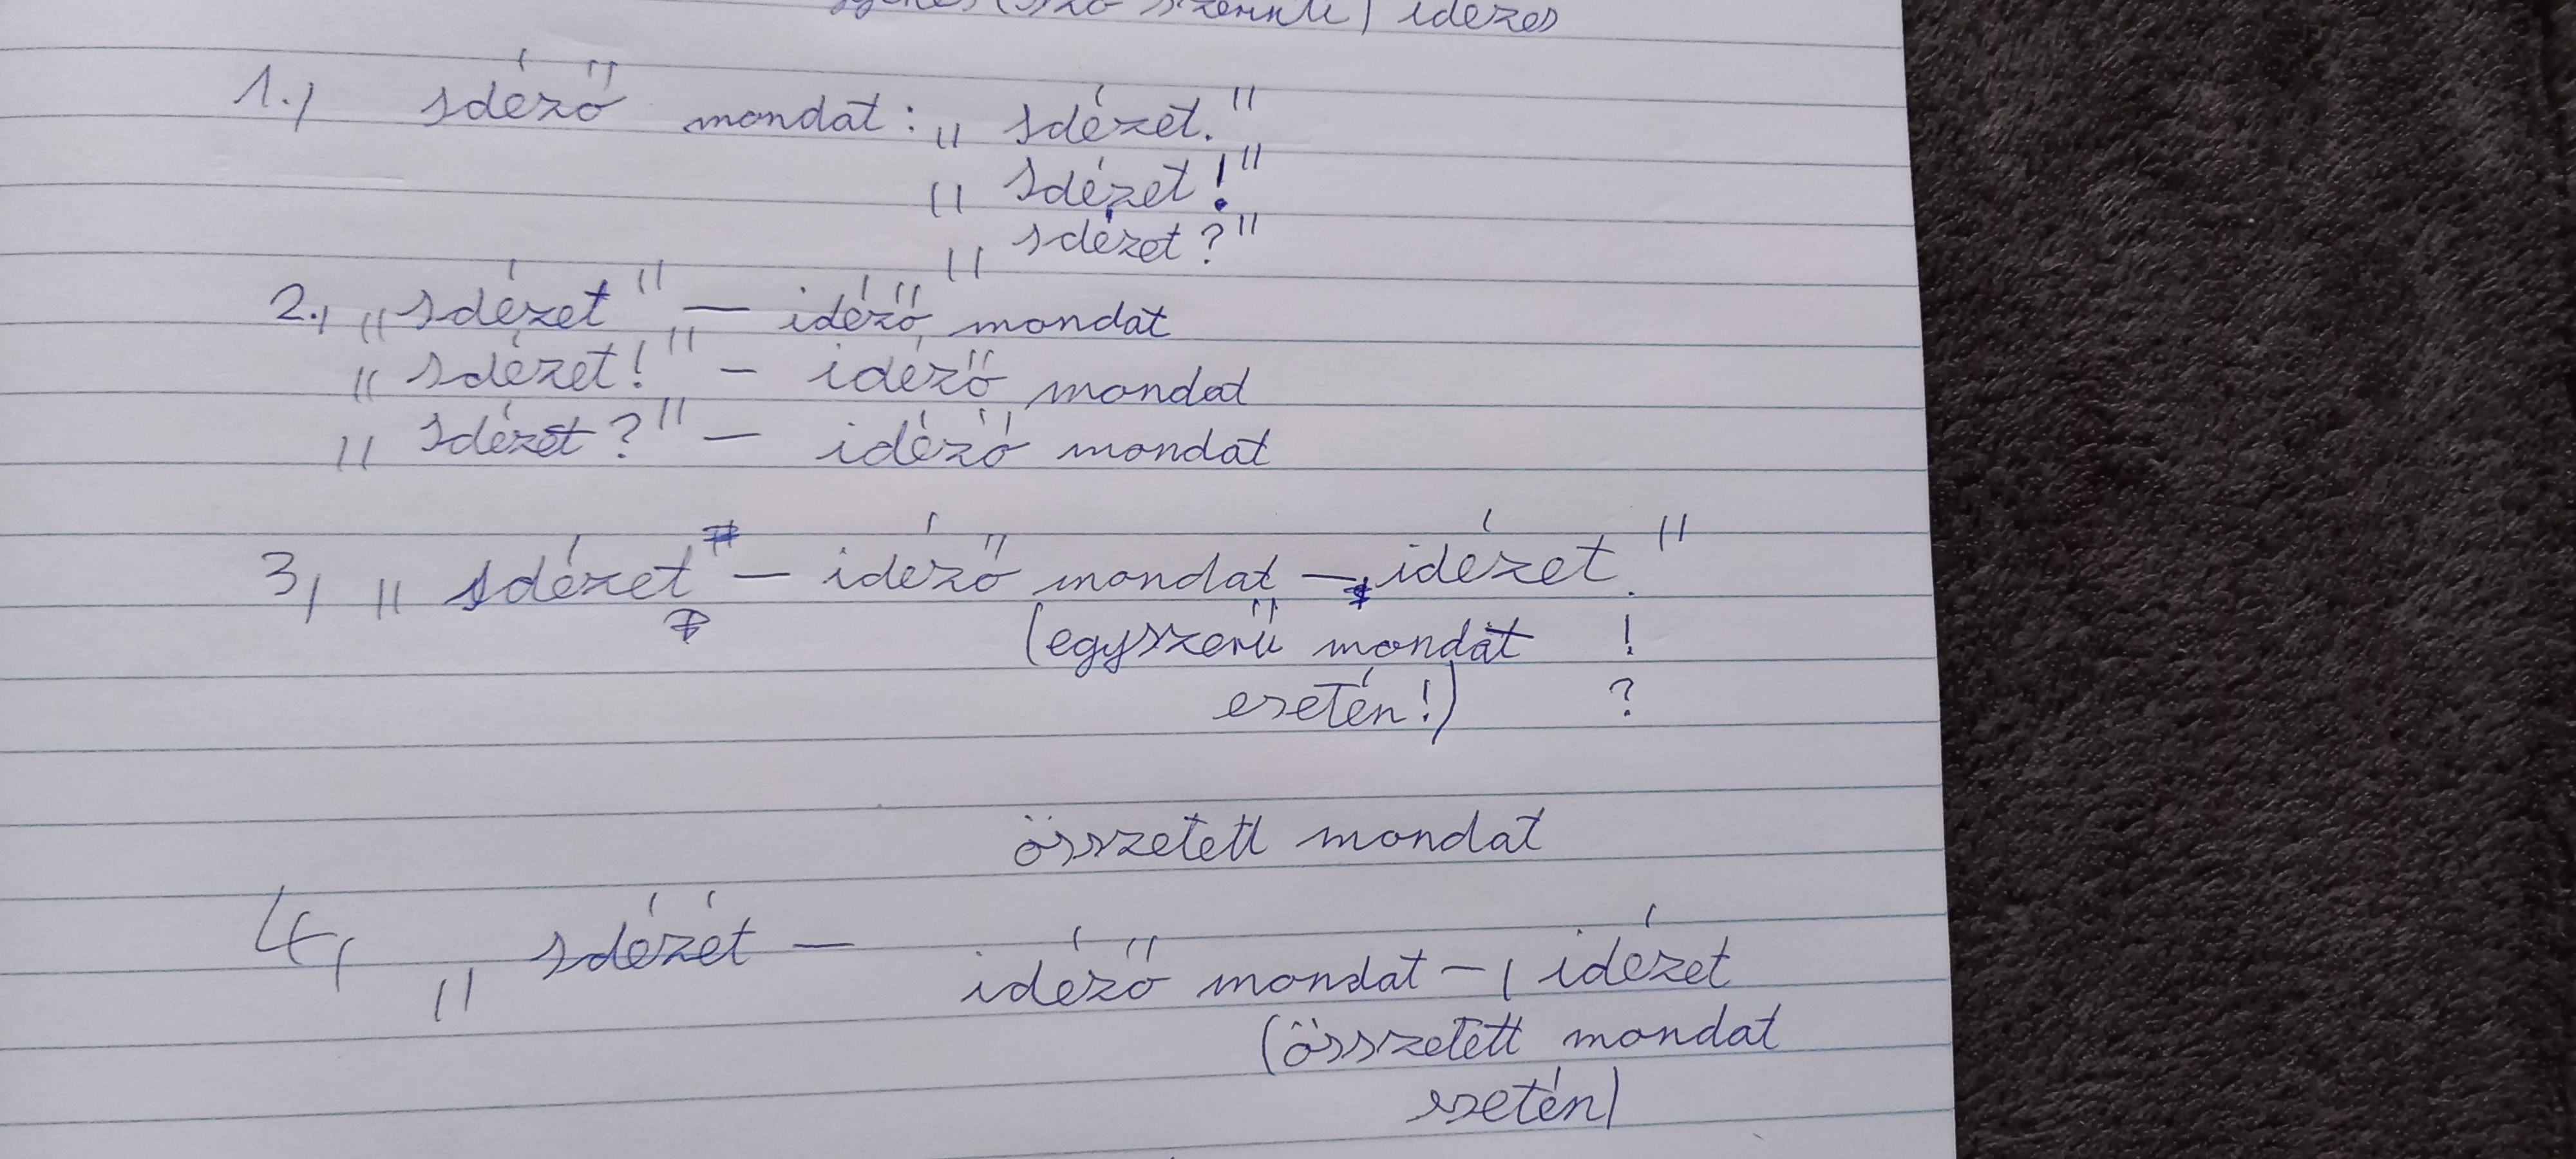 (szó szerinti) idézés
1.) Idéző mondat: „Idézet."
„Idézet!"
„Idézet?"
2., „Idézet" – idéző mondat
„Idézet!" – idéző mondat
„Idézet?" – idéző mondat
3, „Idézet – idéző mondat – idézet."
(egyszerű mondat !
esetén!) ?
összetett mondat
4, „Idézét – idéző mondat –, idézet
(összetett mondat
esetén)